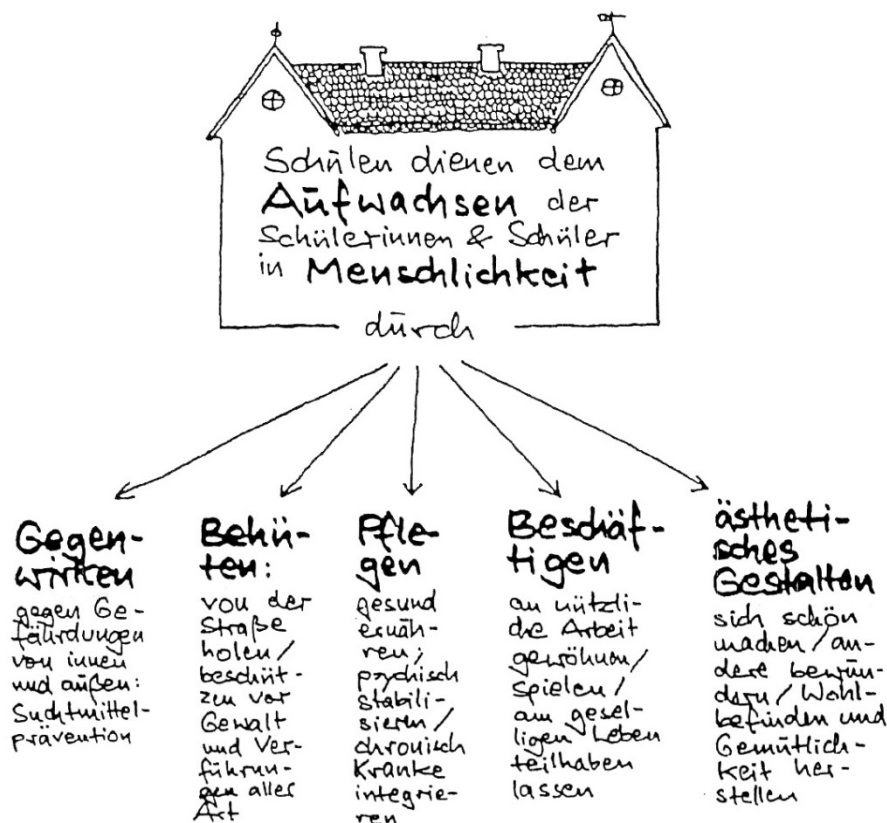 Schulen dienen dem
Aufwachsen der
Schülerinnen & Schüler
in Menschlichkeit
durch
Gegen-
wirken
gegen Ge-
fährdungen
von innen
und außen:
Suchtmittel-
prävention
Behü-
ten:
von der
Straße
holen/
beschüt-
zen vor
Gewalt
und Ver-
führun-
gen aller
Art
Pfle-
gen
gesund
ernäh-
ren;
psychisch
stabili-
sieren/
chronisch
Kranke
integrie-
ren
Beschäf-
tigen
an nützli-
che Arbeit
gewöhnen/
spielen/
am gesel-
ligen Leben
teilhaben
lassen
ästheti-
sches
Gestalten
sich schön
machen/an-
dere bewun-
dern/Wohl-
befinden und
Gemütlich-
keit her-
stellen